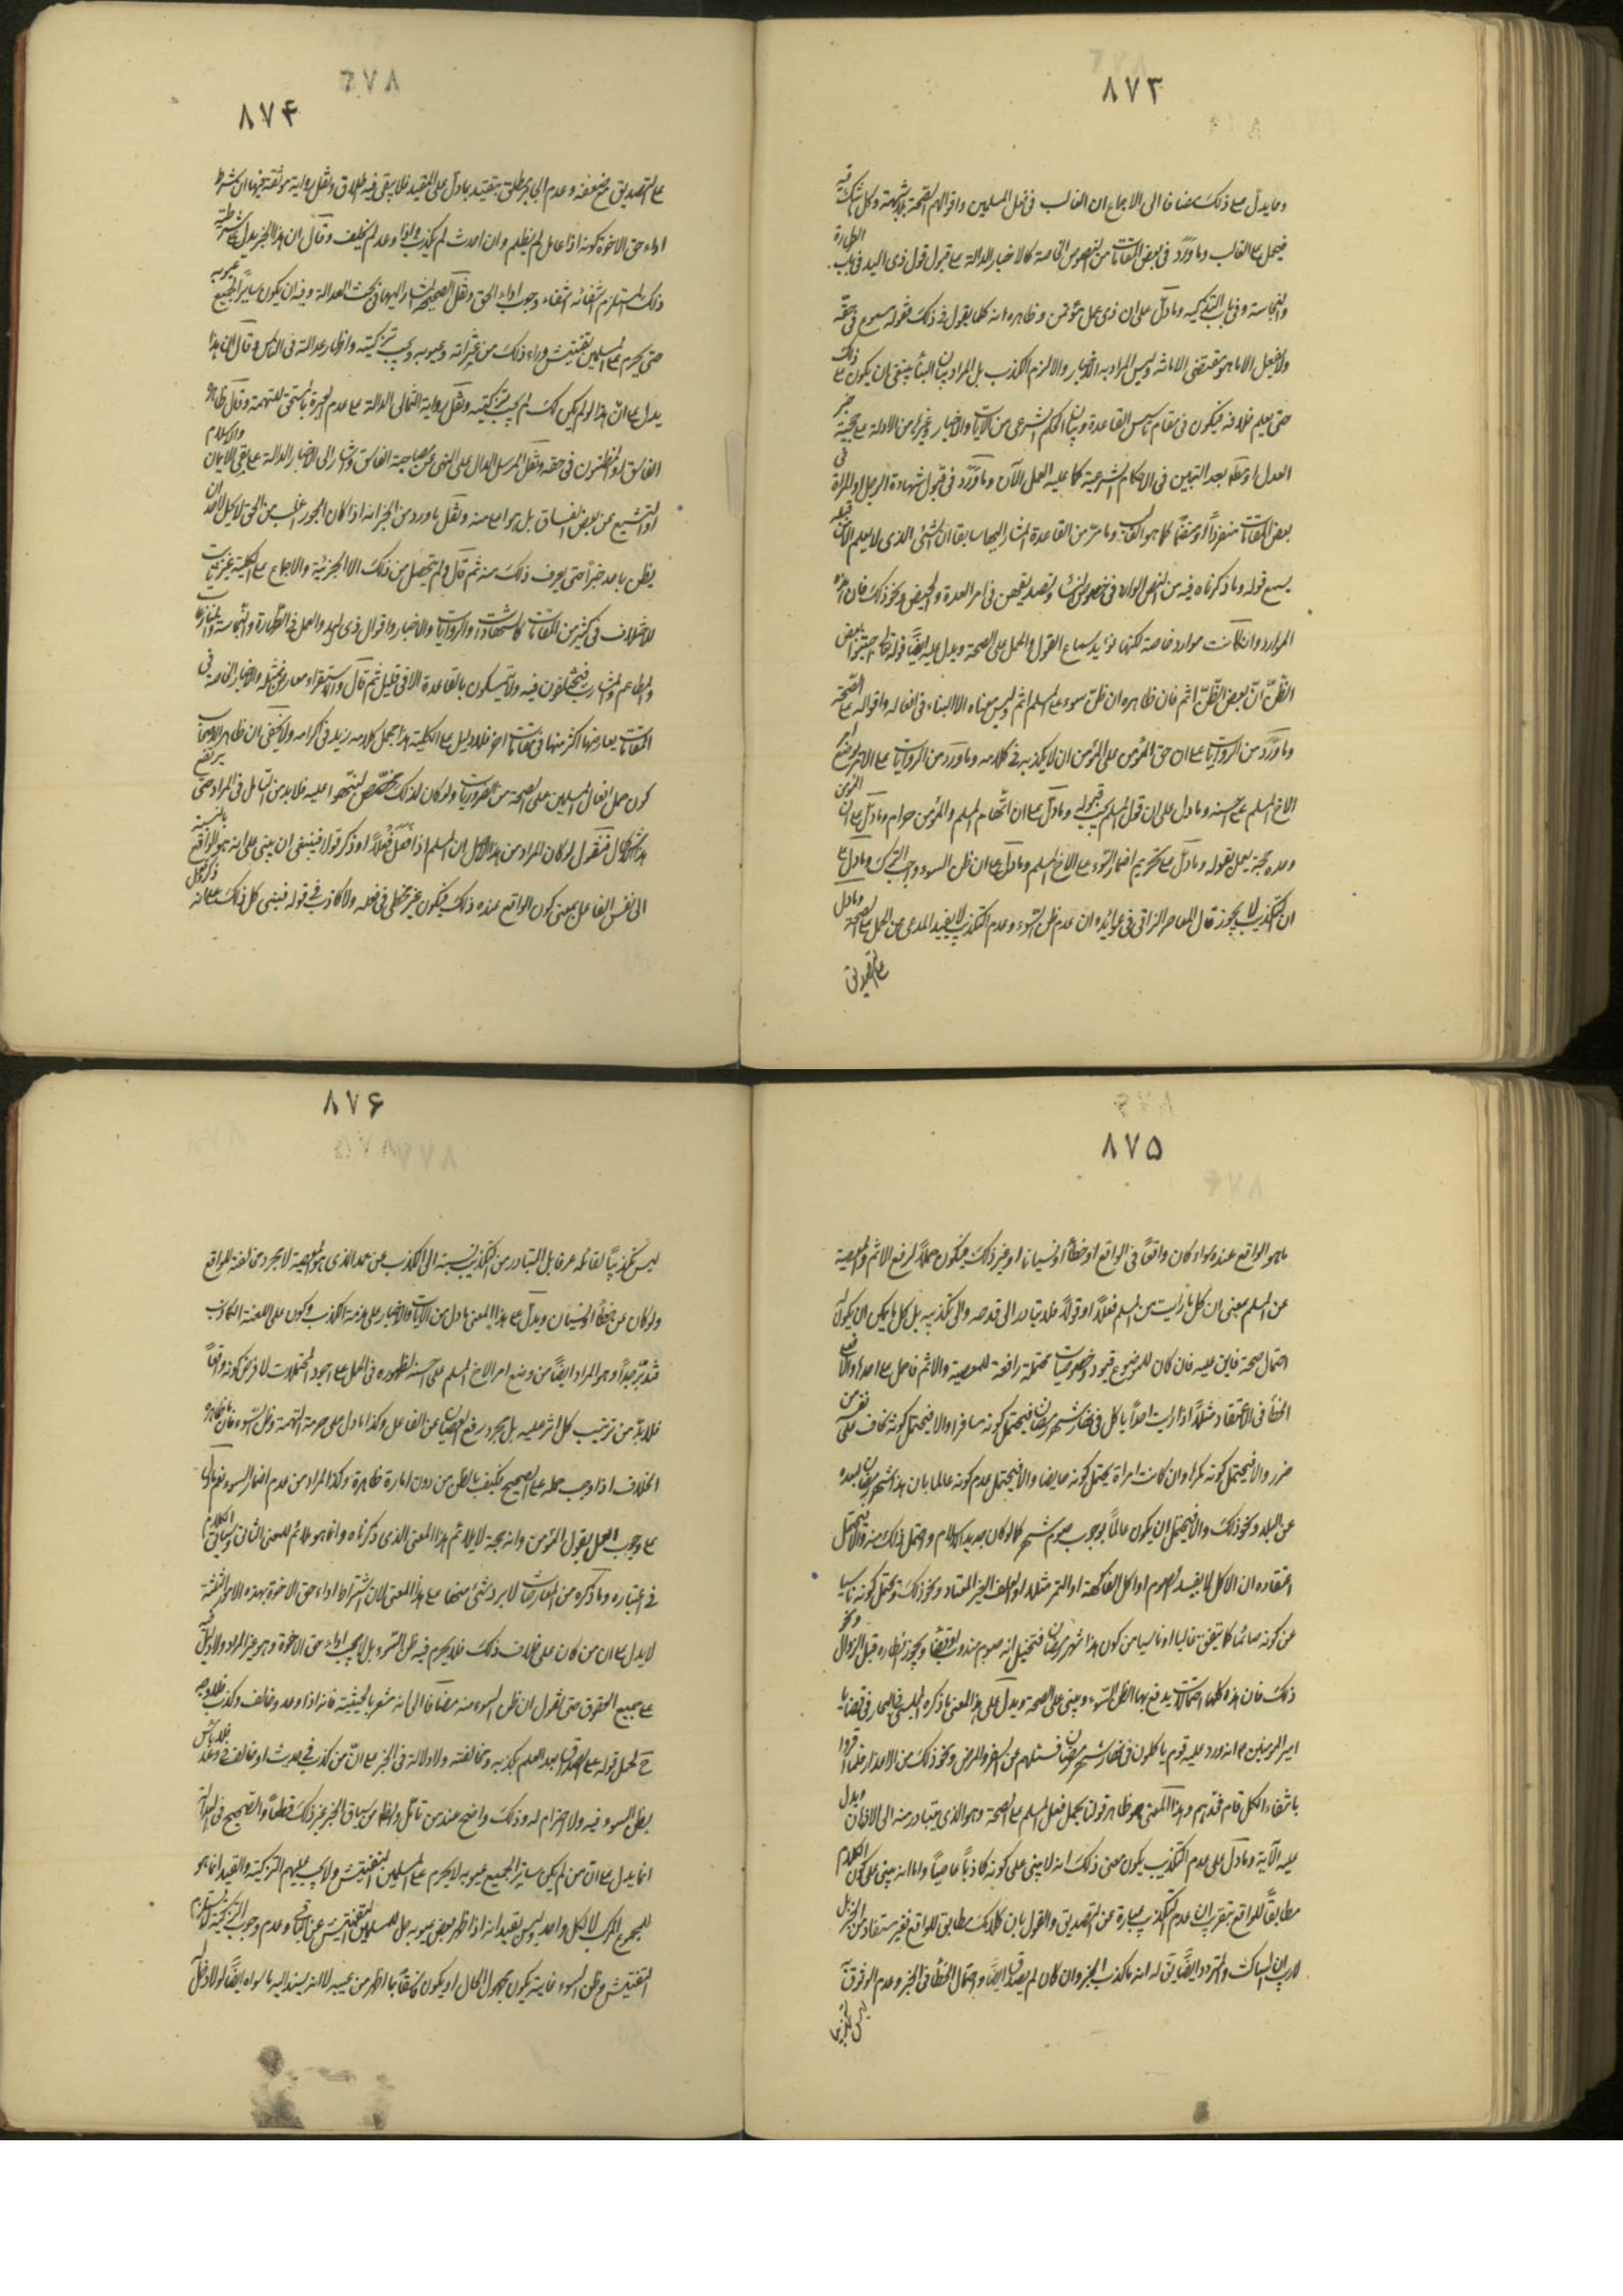 ٨٧٣
ومما يدل على ذلك مضافا الى الاجماع ان الغالب فى فعل المسلمين واقوالهم الصحة بلا شبهة وكل ما شك فيه
فيحمل على الغالب وما ورد فى بعض المقامات من النصوص الخاصة كالاخبار الدالة على قبول قول ذى اليد فى باب الطهارة
والنجاسة وفى باب التذكية وما دل على ان ذى عمل مؤتمن وظاهره انه كلما يقول فى ذلك فقوله مسموع فى حقه
ولا يفعل الا ما هو مقتضى الامانة وليس المراد به الاخبار والا لزم الكذب بل المراد بيان البناء ينبغى ان يكون على ذلك
حتى يعلم خلافه فيكون فى مقام تاسيس القاعدة وبيان الحكم الشرعى من الآيات والاخبار وغيرها من الادلة على حجية خبر
العدل او مطلقا بعد التبين فى الاحكام الشرعية كما عليه العمل الآن وما ورد فى قبول شهادة الرجل او المراة فى
بعض المقامات منفردا او منضما كما هو الغالب وما مر من القاعدة المشار اليها سابقا ان الشئ الذى لا يعلم الا من قبله
يسمع قوله وما ذكرناه فيه من النص الوارد فى خصوص النساء وتصديقهن فى امر العدة والحيض ونحو ذلك فان هذه
الموارد وان كانت موارد خاصة لكنها مؤيد سماع القول والحمل على الصحة ويدل عليه ايضا قوله تعالى اجتنبوا بعض
الظن ان بعض الظن اثم فان ظاهره ان ظن سوء على المسلم اثم وليس معناه الا البناء فى افعاله واقواله على الصحة
وما ورد من الروايات على ان حق المؤمن على المؤمن ان لا يكذبه فى كلامه وما ورد من الروايات على الامر بوضع امر
الاخ المسلم على احسنه وما دل على ان قول المسلم يجب قبوله وما دل على ان اتهام المسلم والمؤمن حرام وما دل على ان المؤمن
وحده حجة يعمل بقوله وما دل على تحريم اضمار السوء على الاخ المسلم وما دل على ان ظن السوء واجب الترك وما دل على
ان التكذيب لا يجوز قال المعاصر النراقى فى عوائده ان عدم ظن السوء وعدم التكذيب لا يفيد المدعى من الحمل على الصحة وما دل
على التصديق
٨٧۴
على التصديق مع ضعفه وعدم الجابر مطلق يتقيد بما دل على المقيد فلا يبقى فيه اطلاق ونقل رواية موثقة فيها ان شرط
اداء حق الاخوة كونه اذا عامل لم يظلم وان احدث لم يكذب واذا وعد لم يخلف وقال ان هذا الخبر يدل على شرطية
ذلك المستلزم انتفائه انتفاء وجوب اداء الحق ونقل الصحيح المشار اليها فى بحث العدالة وفيه ان يكون ساترا لجميع عيوبه
حتى يحرم على المسلمين تفتيش وراء ذلك من عثراته وعيوبه ويجب تزكيته واظهار عدالته فى الناس وقال ان هذا
يدل على ان هذا لو لم يكن كك لم يجب تزكيته ونقل رواية الثمالى الدالة على عدم الخيرة ما ستحق للتهمة وقال
الفاسق والمظنون فى حقه ونقل المرسل الدال على النهى عن مصاحبة الفاسق واشار الى الاخبار الدالة على نفى الايمان والاسلام
او التشيع عن بعض الفساق بل هو امه منه ونقل ما ورد من الخبر انه اذا كان الجور اغلب من الحق لا يحل لاحد ان
يظن باحد خيرا حتى يعرف ذلك منه ثم قال ولم يتحصل من ذلك الا الجزئية والاجماع على الكلية غير ثابت
للاختلاف فى كثير من المقامات كالشهادات والروايات والاخبار واقوال ذى اليد والعمل فى الطهارة والنجاسة والمناكحات
والمطاعم والمشارب فيختلفون فيه ولا يتمسكون بالقاعدة الا فى قليل ثم قال والاستقراء معارض بمثله والاخبار الخاصة فى
المقامات يعارضها اكثر منها فى مقامات اخر فلا دليل على الكلية هذا مجمل كلامه زيد فى اكرامه ولا يخفى ان ظاهر الاصحاب
كون حمل افعال المسلمين على الصحة من الضروريات ولو كان لذلك مخصص لنبهوا عليه فلا بد من التامل فى المراد حتى يرتفع
هذا الاشكال فنقول لو كان المراد من هذا الاصل ان المسلم اذا فعل فعلا او ذكر قولا فينبغى ان يبنى على انه هو الواقع بالنسبة
الى نفس الفاعل بمعنى كون الواقع عنده ذلك فيكون غير مخطى فى فعله ولا كاذب فى قوله فيبنى كل ذلك على انه
٨٧۵
ما هو الواقع عنده سواء كان واقعا فى الواقع او خطأ او نسيانا او غير ذلك فيكون حملا لرفع الاثم والمعصية
عن المسلم بمعنى ان كل ما رايت من المسلم فعلا او قولا فلا تبادر الى قدحه والى تكذيبه بل كل ما يمكن ان يكون له
احتمال صحة فابن عليه فان كان للموضوع قيود وخصوصيات محتملة رافعة للمعصية والاثم فاحمل على احدها والا فعلى
الخطأ فى الاعتقاد مثلا اذا رايت احدا ياكل فى نهار شهر رمضان فيحتمل كونه مسافرا والا فيحتمل كونه يخاف على نفسه من
ضرر والا فيحتمل كونه مكرها وان كانت امراة يحتمل كونه حايضا والا فيحتمل عدم كونه عالما بان هذا شهر رمضان لبعده
عن البلد ونحو ذلك والا فيحتمل ان يكون عالما بوجوب صوم شهر كما لو كان جديد الاسلام واحتمل ذلك منه والا فيحتمل
اعتقاده ان الاكل كك لا يفسد الصوم او اكل الفاكهة او التمر مثلا او الخبز المعتاد ونحو ذلك ويحتمل كونه ناسيا
عن كونه صائما كما يتفق غالبا او ناسيا من كون هذا شهر رمضان فتخيل انه صوم مندوب ويجوز افطاره قبل الزوال ونحو
ذلك فان هذه كلها احتمالات يدفع بها الظن السوء ويبنى على الصحة ويدل على هذا المعنى ما ذكره المجلسى فى البحار فى قضايا
امير المؤمنين ع انه ورد عليه قوم ياكلون فى نهار شهر رمضان فسئلهم عن السفر والمرض ونحو ذلك من الاعذار فلما اقروا
بانتفاء الكل قام فحدهم وهذا المعنى هو ظاهر قولنا يحمل فعل المسلم على الصحة وهو الذى يتبادر منه الى الاذهان ويدل
عليه الآية وما دل على عدم التكذيب يكون معنى ذلك انه لا يبنى على كونه كاذبا عاصيا واما انه يبنى على كون الكلام
مطابقا للواقع بتقريب ان عدم التكذيب عبارة عن التصديق والقول بان كلامك مطابق للواقع فغير مستفاد من الخبر بل
لا ريب ان الساكت والمتردد ايضا يق له انه ما كذب الخبر وان كان لم يصدق ايضا واحتمال الخطأ فى الخبر وعدم الوثوق
٨٧۶
ليس تكذيبا لقائله عرفا بل المتبادر من التكذيب نسبته الى الكذب عن عمد الذى هو المعصية لا مجرد مخالفته للواقع
ولو كان من خطأ او نسيان ويدل على هذا المعنى ما دل من الآيات والاخبار على حرمة الكذب وكون على اللعنة الكاذب
فتدبر جدا وهو المراد ايضا من وضع امر الاخ المسلم على احسنه لظهوره فى الحمل على اجود المحتملات لا فرض كونه واقعا
فلا بد من ترتيب كل اثر عليه بل مجرد رفع العصيان عن الفاعل وكذا ما دل على حرمة التهمة وظن السوء فان ظاهره
الخلاف اذا وجب حمله على الصحيح فكيف بالظن من دون امارة ظاهرة وكذا المراد من عدم اضمار السوء نعم ما دل
على وجوب العمل بقول المؤمن وانه حجة لا يلائم هذا المعنى الذى ذكرناه وانما هو ملائم للمعنى الثانى وسياتى الكلام
فى اعتباره وما ذكره من المعارضات لا يرد شئ منها على هذا المعنى لان اشتراط اداء حق الاخوة بهذه الامور الثلثة
لا يدل على ان من كان على خلاف ذلك فلا يحرم فيه ظن السوء بل لا يجب اداء حق الاخوة وهو غير المراد ولا دليل فيه
على جميع الحقوق حتى نقول ان ظن السوء منه مضافا الى انه مشعر بالحيثية فانه اذا وعد وخالف وكذب فلا وجه
ح لحمل قوله على الصدق بعد العلم بكذبه ومخالفته ولا دلالة فى الخبر على ان من كذب فى حديث او خالف فى وعد فلا باس
بظن السوء فيه ولا احترام له وذلك واضح عند من تامل ونظر من سياق الخبر غير ذلك قطعا والصحيح فى العدالة
انما يدل على ان من لم يكن ساترا لجميع عيوبه لا يحرم على المسلمين التفتيش ولا يجب عليهم التزكية والقيد انما هو
للمجموع المركب لا لكل واحد وليس بقيد انه اذا ظهر بعض عيوبه حل للمسلمين التفتيش عن الباقى وعدم وجوب التزكية لا يستلزم
التفتيش وظن السوء غايته يكون مجهول الحال او يكون فاسقا بما اظهر من عيبه لا انه يسند اليه ما سواه ايضا ولا دخل